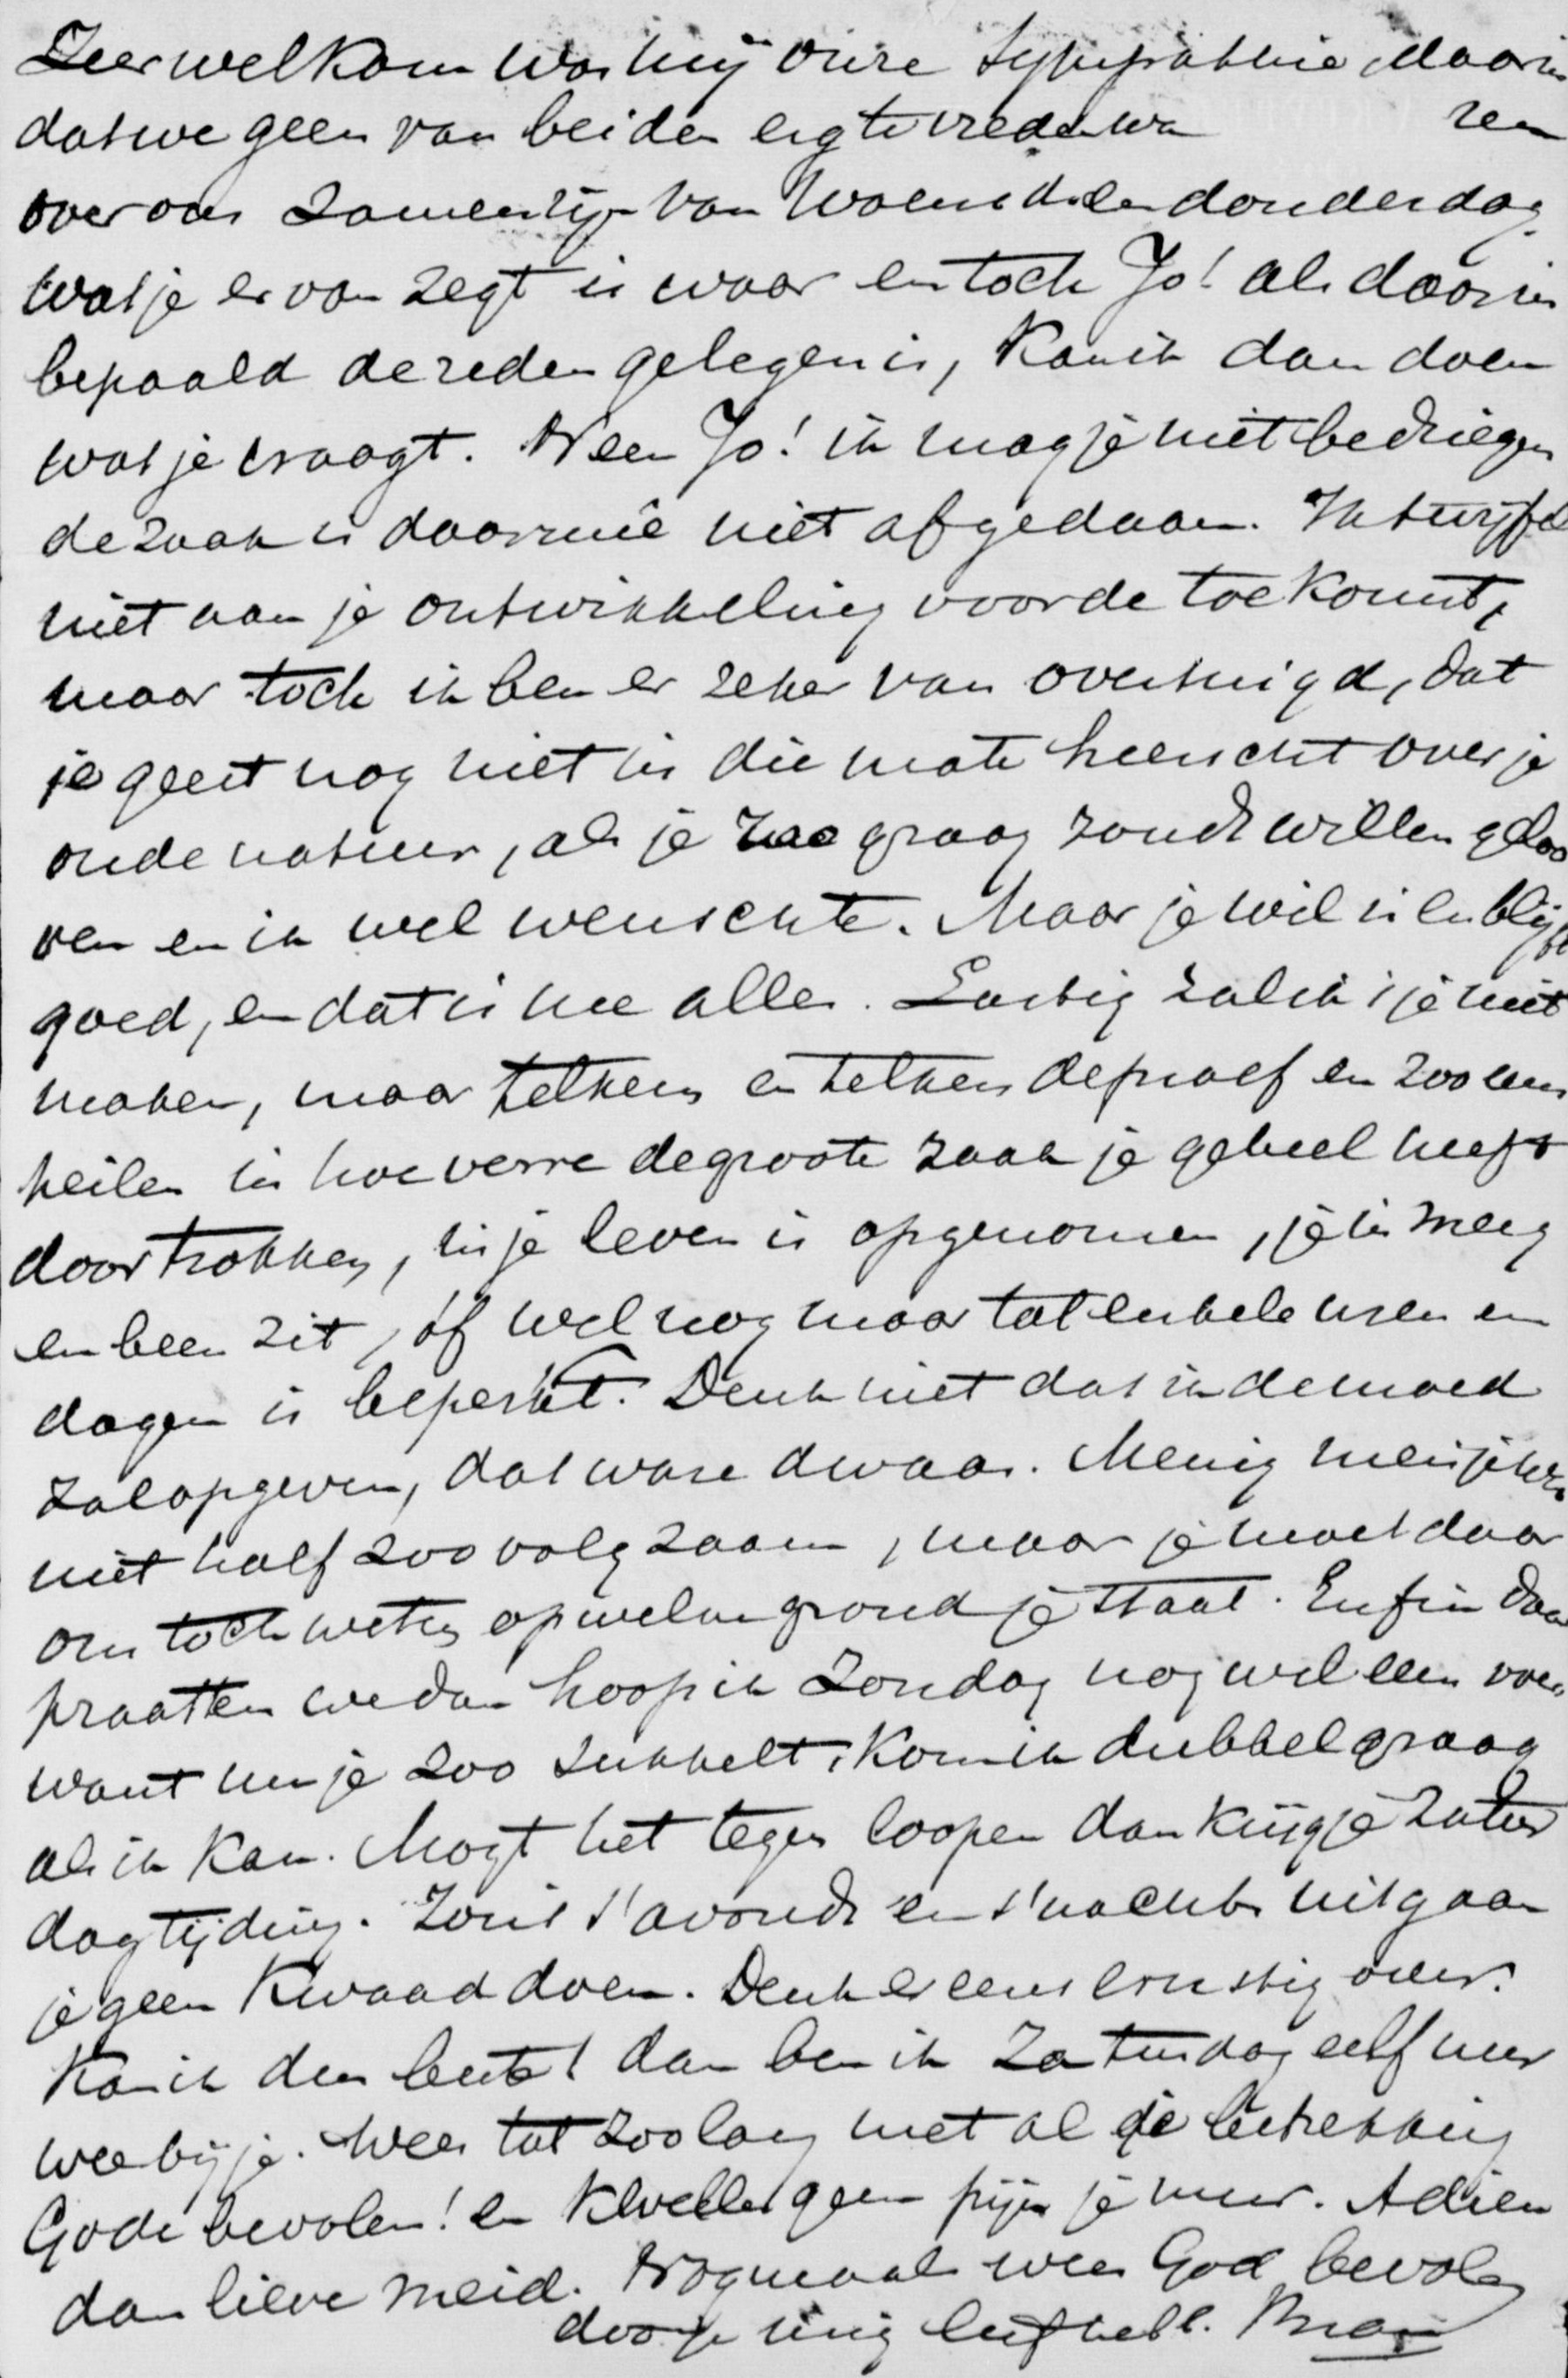 Zeer welkom was mij onze sympathie daarin
dat we geen van beiden erg tevreden wa ren
over ons zamenzijn van Woensd. en donderdag
wat je er van zegt is waar en toch Jo! als daarin
bepaald de reden gelegen is, kan ik dan doen
wat je vraagt. Neen Jo! ik mag je niet bedriegen
de zaak is daarmeê niet afgedaan. Ik twijfel
niet aan je ontwikkeling voor de toekomst,
maar toch ik ben er zeker van overtuigd, dat
je geest nog niet in die mate heerscht over je
oude natuur, als je zoo graag zoudt willen geloo
ven en ik wel wenschte. Maar je wil is en blijft
goed, en dat is me alles. Lastig zal ik 't je niet
maken, maar telkens en telkens de proef en zoo eens
peilen in hoeverre de groote zaak je geheel heeft
doortrokken, in je leven is opgenomen, je in merg
en been zit, óf wel nog maar tot enkele uren en
dagen is beperkt. Denk niet dat ik de moed
zal opgeven, dat ware dwaas. Menig meisje is
niet half zoo volgzaam, maar je moet daar
om toch weten op welken grond je staat. Enfin daar
praatten we dan hoop ik Zondag nog wel eens over
want nu je zoo sukkelt, kom ik dubbel graag
als ik kan. Mogt het tegen loopen dan krijg je Zatur
dag tijding. Zou 't s'avonds en s'nachts uitgaan
je geen kwaad doen. Denk er eens ernstig over.
Kan ik dus best! dan ben ik Zaturdag elf uur
wee bij je. Wees tot zoolang met al je betrekking
Gode bevolen! en kwelle geen pijn je meer. Adieu
dan lieve meid. Nogmaals wees God bevolen
door je innig liefhebb. Bram